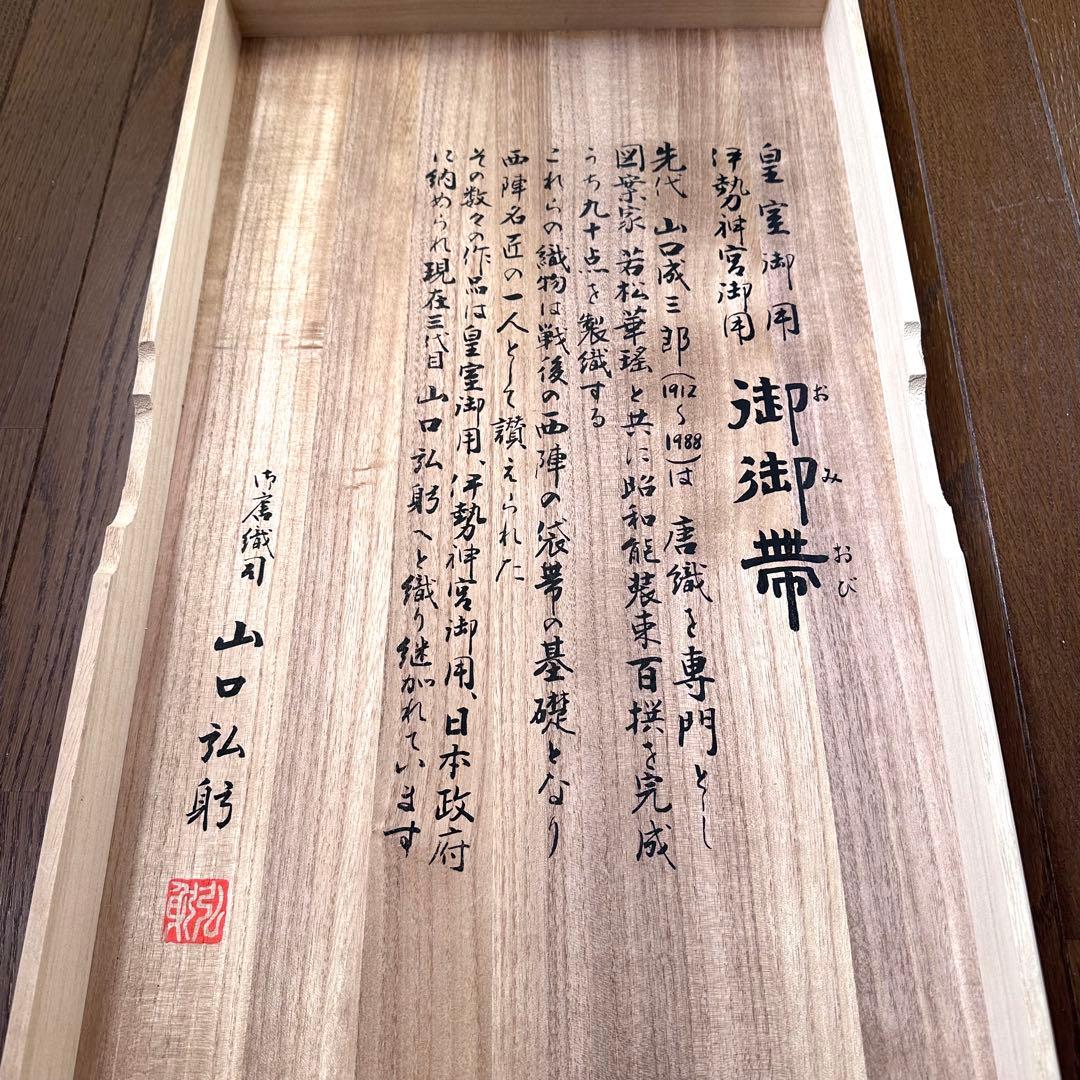 皇室御用
伊勢神宮御用
御御帯
おみおび
先代 山口成三郎(1912〜1988)は 唐織を専門とし
図案家 若松華瑤と共に昭和能装束百撰を完成
うち九十点を製織する
これらの織物は戦後の西陣の袋帯の基礎となり
西陣名匠の一人として讃えられた
その数々の作品は皇室御用、伊勢神宮御用、日本政府
に納められ現在三代目 山口弘躬へと織り継がれています
御唐織司
山口弘躬
弘躬